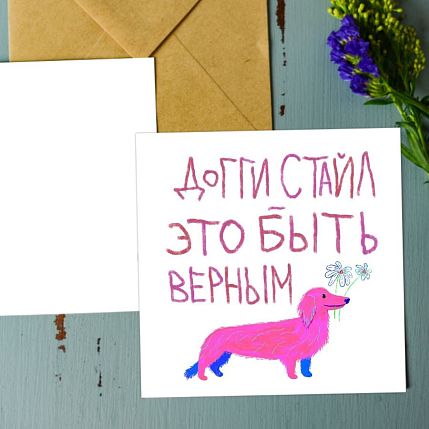 ДОГГИ СТАЙЛ
ЭТО БЫТЬ
ВЕРНЫМ